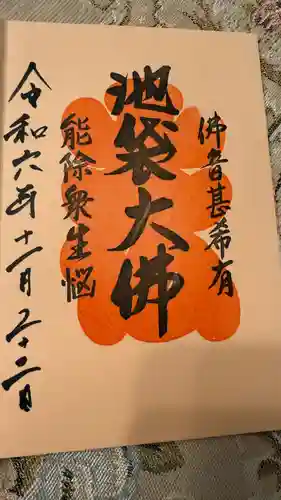 佛音甚希有
池袋大佛
能除衆生惱
令和六年十一月二十二日